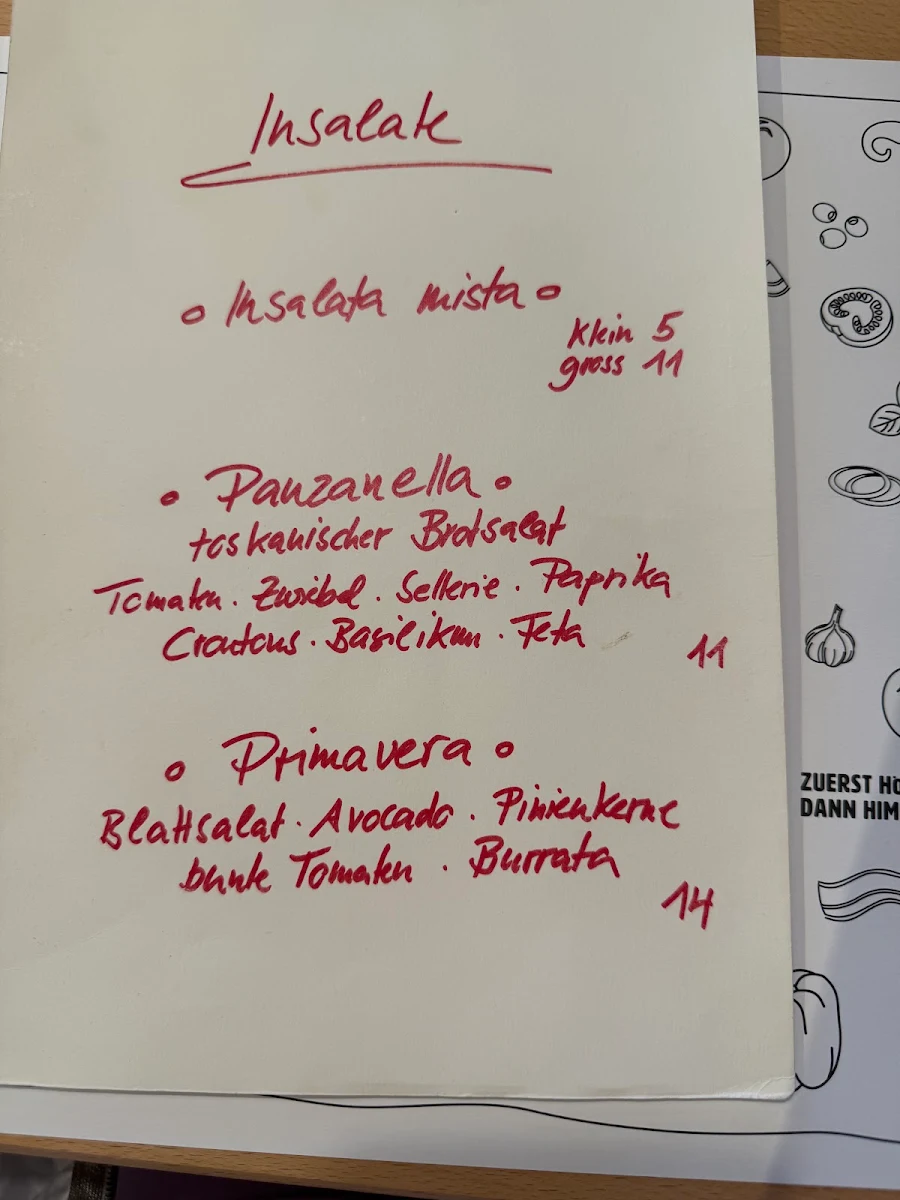 Insalate
o Insalata mista o
Klein 5
gross 11
o Panzanella o
toskanischer Brotsalat
Tomaten · Zwiebel · Sellerie · Paprika
Croutons · Basilikum · Feta
11
o Primavera o
Blattsalat · Avocado · Pinienkerne
bunte Tomaten · Burrata
14
ZUERST
DANN